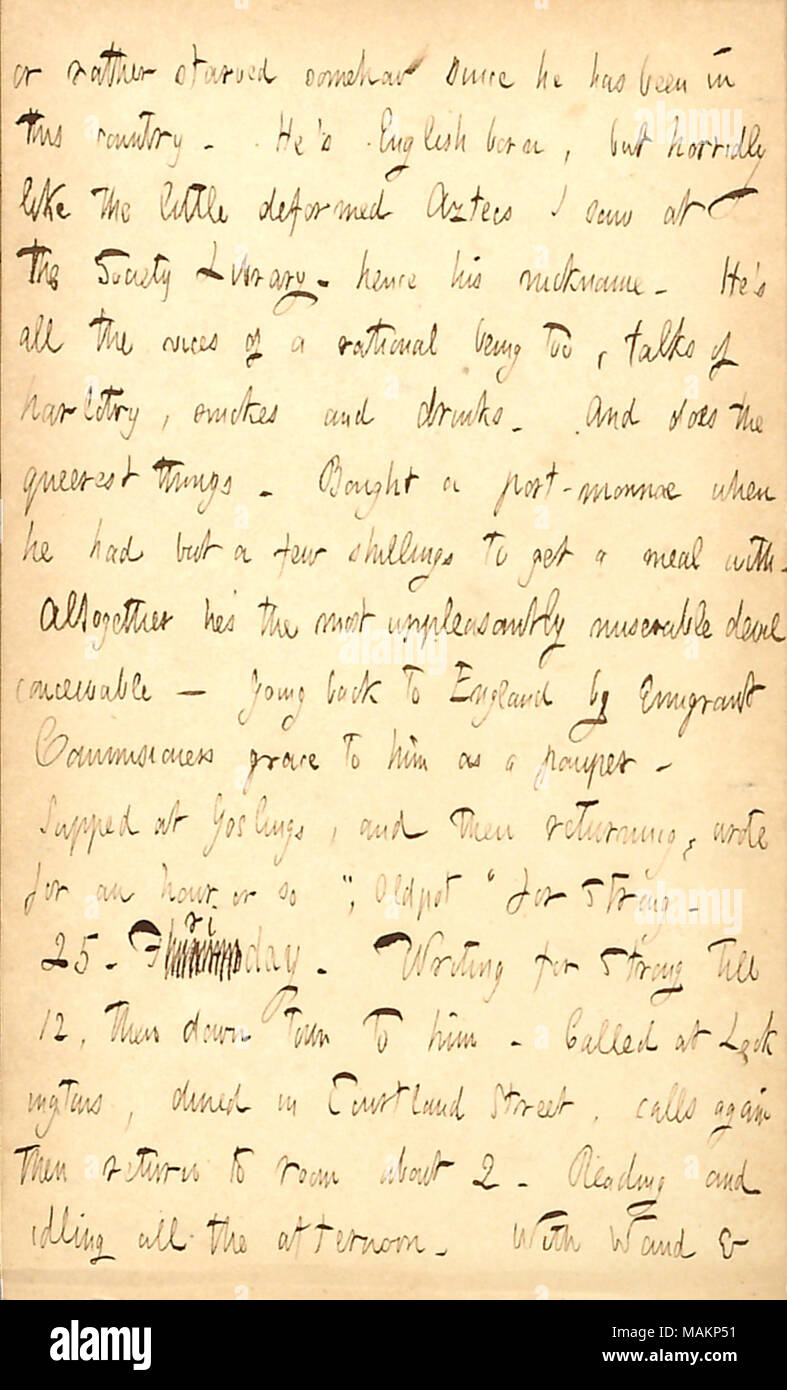 or rather starved somehow since he has been in
this country. He's English born, but horridly
like the little deformed Aztecs I saw at
the Society Library. hence his nickname. He's
all the vices of a rational being too, talks of
harlotry, smokes and drinks. And does the
queerest things. Bought a port-monnae when
he had but a few shillings to get a meal with.
Altogether he's the most unpleasantly miserable devil
conceivable — going back to England by Emigrant
Commisioners grace to him as a pauper.
Supped at Goslings, and then returning, wrote
for an hour or so ", Oldpot " for Strong.
25. Friday. Writing for Strong till
12, then down Town to him. Called at Lock
ingtons, dined in Courtland Street, calls again
then return to room about 2. Reading and
idling all the afternoon. With Waud &
alamy
Image ID: MAKP51
www.alamy.com